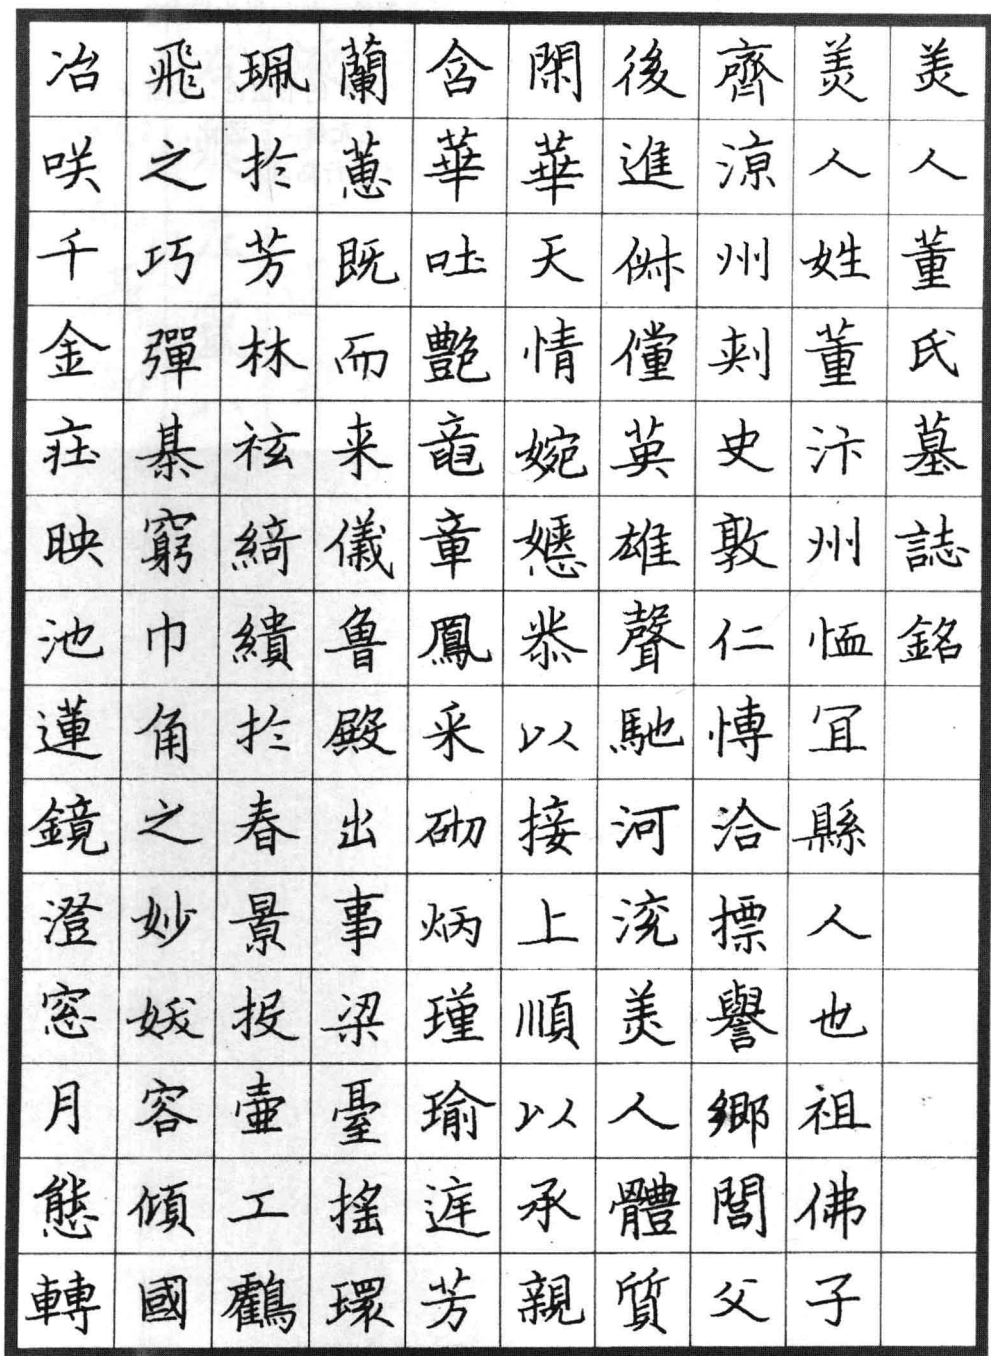 美人董氏墓誌銘
美人姓董汴州恤冝縣人也祖佛子
齊涼州刾史敦仁博洽摽譽鄉閭父
後進俶儻英雄聲馳河渷美人體質
閑華天情婉嫕恭以接上順以承親
含華吐艷竜章鳳采砌炳瑾瑜遟芳
蘭蕙既而来儀魯殿出事梁臺搖環
珮扵芳林袨綺繢扵春景投壷工鸖
飛之巧彈綦窮巾角之妙妖容傾國
冶咲千金荘映池蓮鏡澄窓月態轉